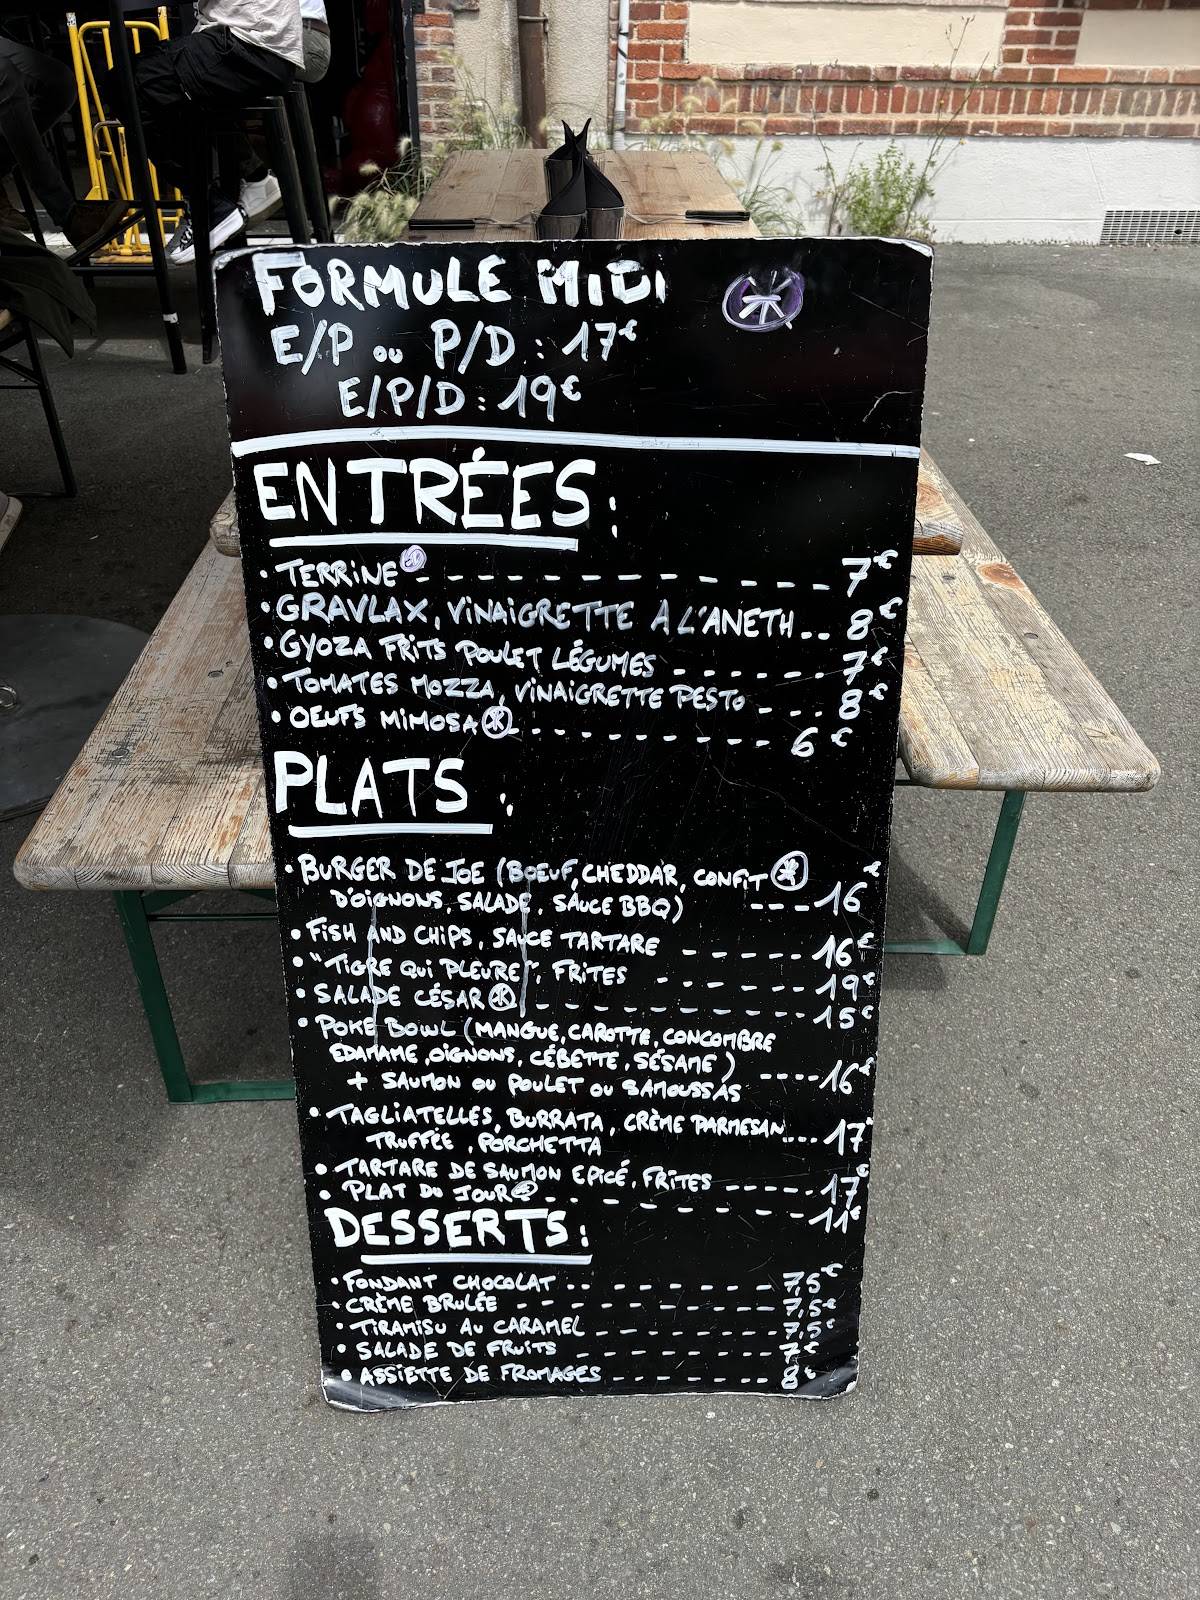 FORMULE MIDI
E/P ou P/D : 17€
E/P/D : 19€
ENTRÉES :
• TERRINE - - - - - - - - - - - - - 7€
• GRAVLAX, VINAIGRETTE A L'ANETH.. 8€
• GYOZA FRITS POULET LÉGUMES - - - - - - 7€
• TOMATES MOZZA, VINAIGRETTE PESTO - - - 8€
• OEUFS MIMOSA - - - - - - - - - - 6€
PLATS :
• BURGER DE JOE (BOEUF, CHEDDAR, CONFIT
D'OIGNONS, SALADE, SAUCE BBQ) ---- 16€
• FISH AND CHIPS, SAUCE TARTARE - - - - - 16€
• "TIGRE QUI PLEURE", FRITES - - - - - - 19€
• SALADE CÉSAR - - - - - - - - - - 15€
• POKE BOWL (MANGUE, CAROTTE, CONCOMBRE
EDAMAME, OIGNONS, CÉBETTE, SÉSAME) ---- 16€
+ SAUMON OU POULET OU SAMOUSSAS
• TAGLIATELLES, BURRATA, CRÈME PARMESAN... 17€
TRUFFÉE, PORCHETTA
• TARTARE DE SAUMON EPICÉ, FRITES - - - - - 17€
• PLAT DU JOUR - - - - - - - - 11€
DESSERTS :
• FONDANT CHOCOLAT - - - - - - - - - 7,5€
• CRÈME BRULÉE - - - - - - - - - - - 7,5€
• TIRAMISU AU CARAMEL - - - - - - - - 7,5€
• SALADE DE FRUITS - - - - - - - - - 7€
• ASSIETTE DE FROMAGES - - - - - - - 8€